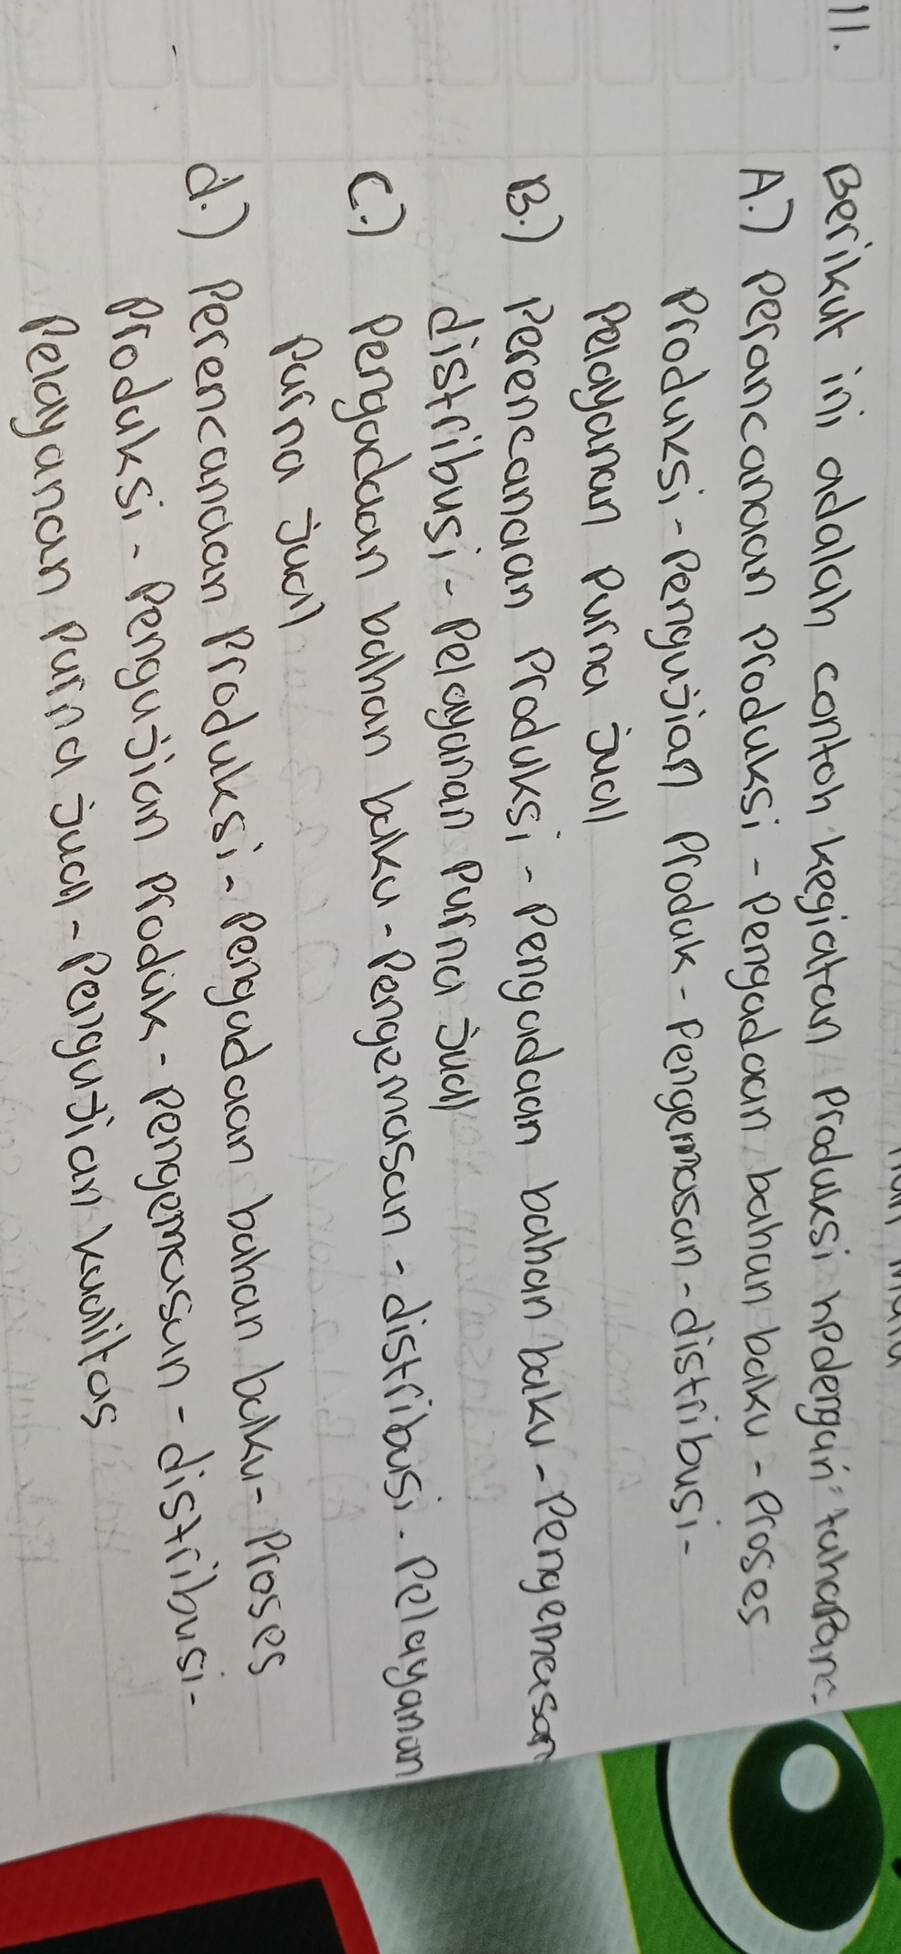 11. Berikut ini adalah contoh kegiatan produksi hpdengan tahapan:
A.) perancanaan produksi - Pengadaan bahan baku - Proses
Produksi - Pengujian Produk - Pengemasan - distribusi -
Pelayanan Purna jual
B.) Perencanaan Produksi - Pengadaan bahan baku - Pengemasan
distribusi - Pelayanan Purna jual
C.) Pengadaan bahan baku - Pengemasan - distribusi - Pelayanan
Purna jual
d.) Perencanaan Produksi - Pengadaan bahan baku - Proses
Produksi - Pengujian Produk - Pengemasan - distribusi -
Pelayanan Purna jual - Pengujian kualitas